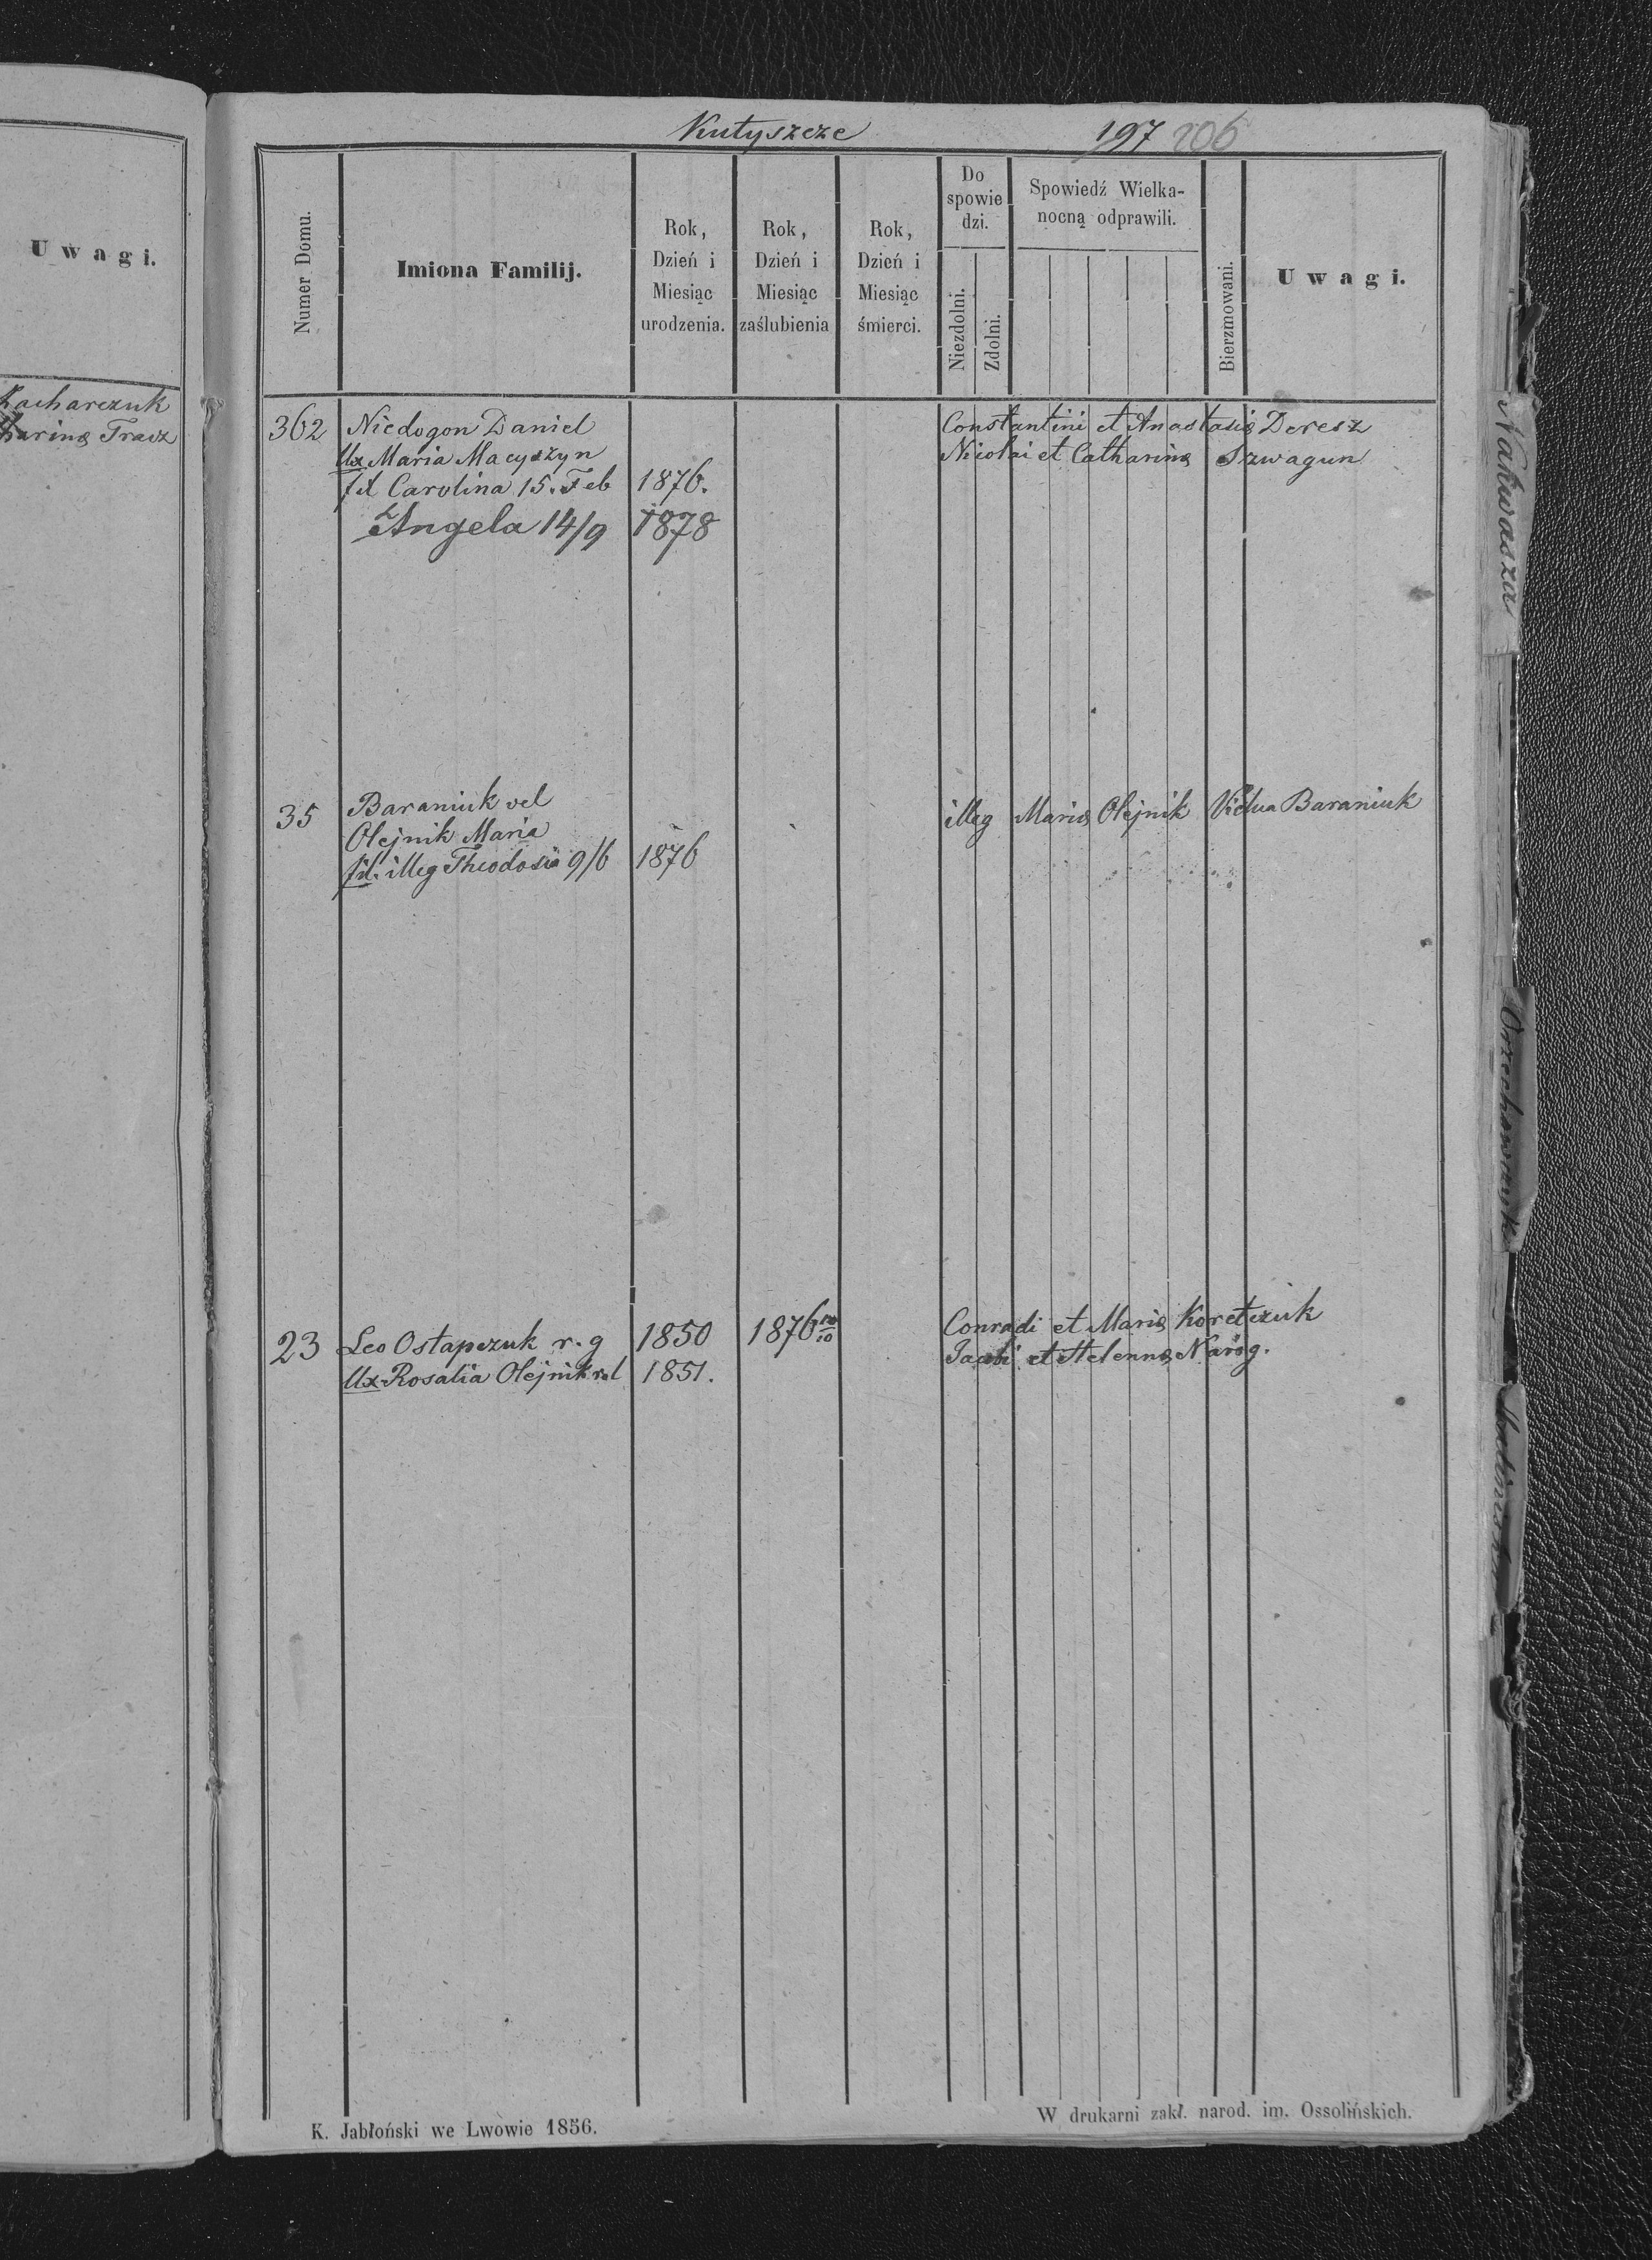 Uwagi.
Tracz
Kutyszcze 197 206
Numer Domu.
Imiona Familij.
Rok, Dzień i Miesiąc urodzenia.
Rok, Dzień i Miesiąc zaślubienia
Rok, Dzień i Miesiąc śmierci.
Do spowiedzi.
Niezdolni.
Zdolni.
Spowiedź Wielkanocną odprawili.
Bierzmowani.
Uwagi.
362 Niedogon Daniel Constantini et Anastasiæ Deresz
Ux Maria Macyszyn Nicolai et Catharinæ Szwagun
fil Carolina 15. Feb 1876.
Angela 14/9 1878
35 Baraniuk vel illeg Mariæ Olejnik Vidua Baraniuk
Olejnik Maria
fil. illeg Theodosia 9/6 1876
23 Leo Ostapczuk r. g 1850 1876 Conradi et Mariæ Koretczuk
Ux Rosalia Olejnik r. l 1851. Jacobi et Helennæ Naróg.
K. Jabłoński we Lwowie 1856.
W drukarni zakł. narod. im. Ossolińskich.